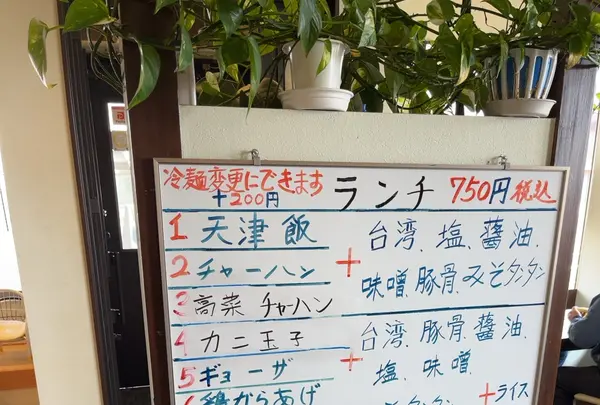 冷麺変更にできます
+200円
ランチ 750円 税込
1 天津飯
2 チャーハン
3 高菜 チャーハン
+
台湾、塩、醤油、
味噌、豚骨、みそタンタン
4 カニ玉子
5 ギョーザ
6 鶏からあげ
+
台湾、豚骨、醤油、
塩、味噌、
+ライス